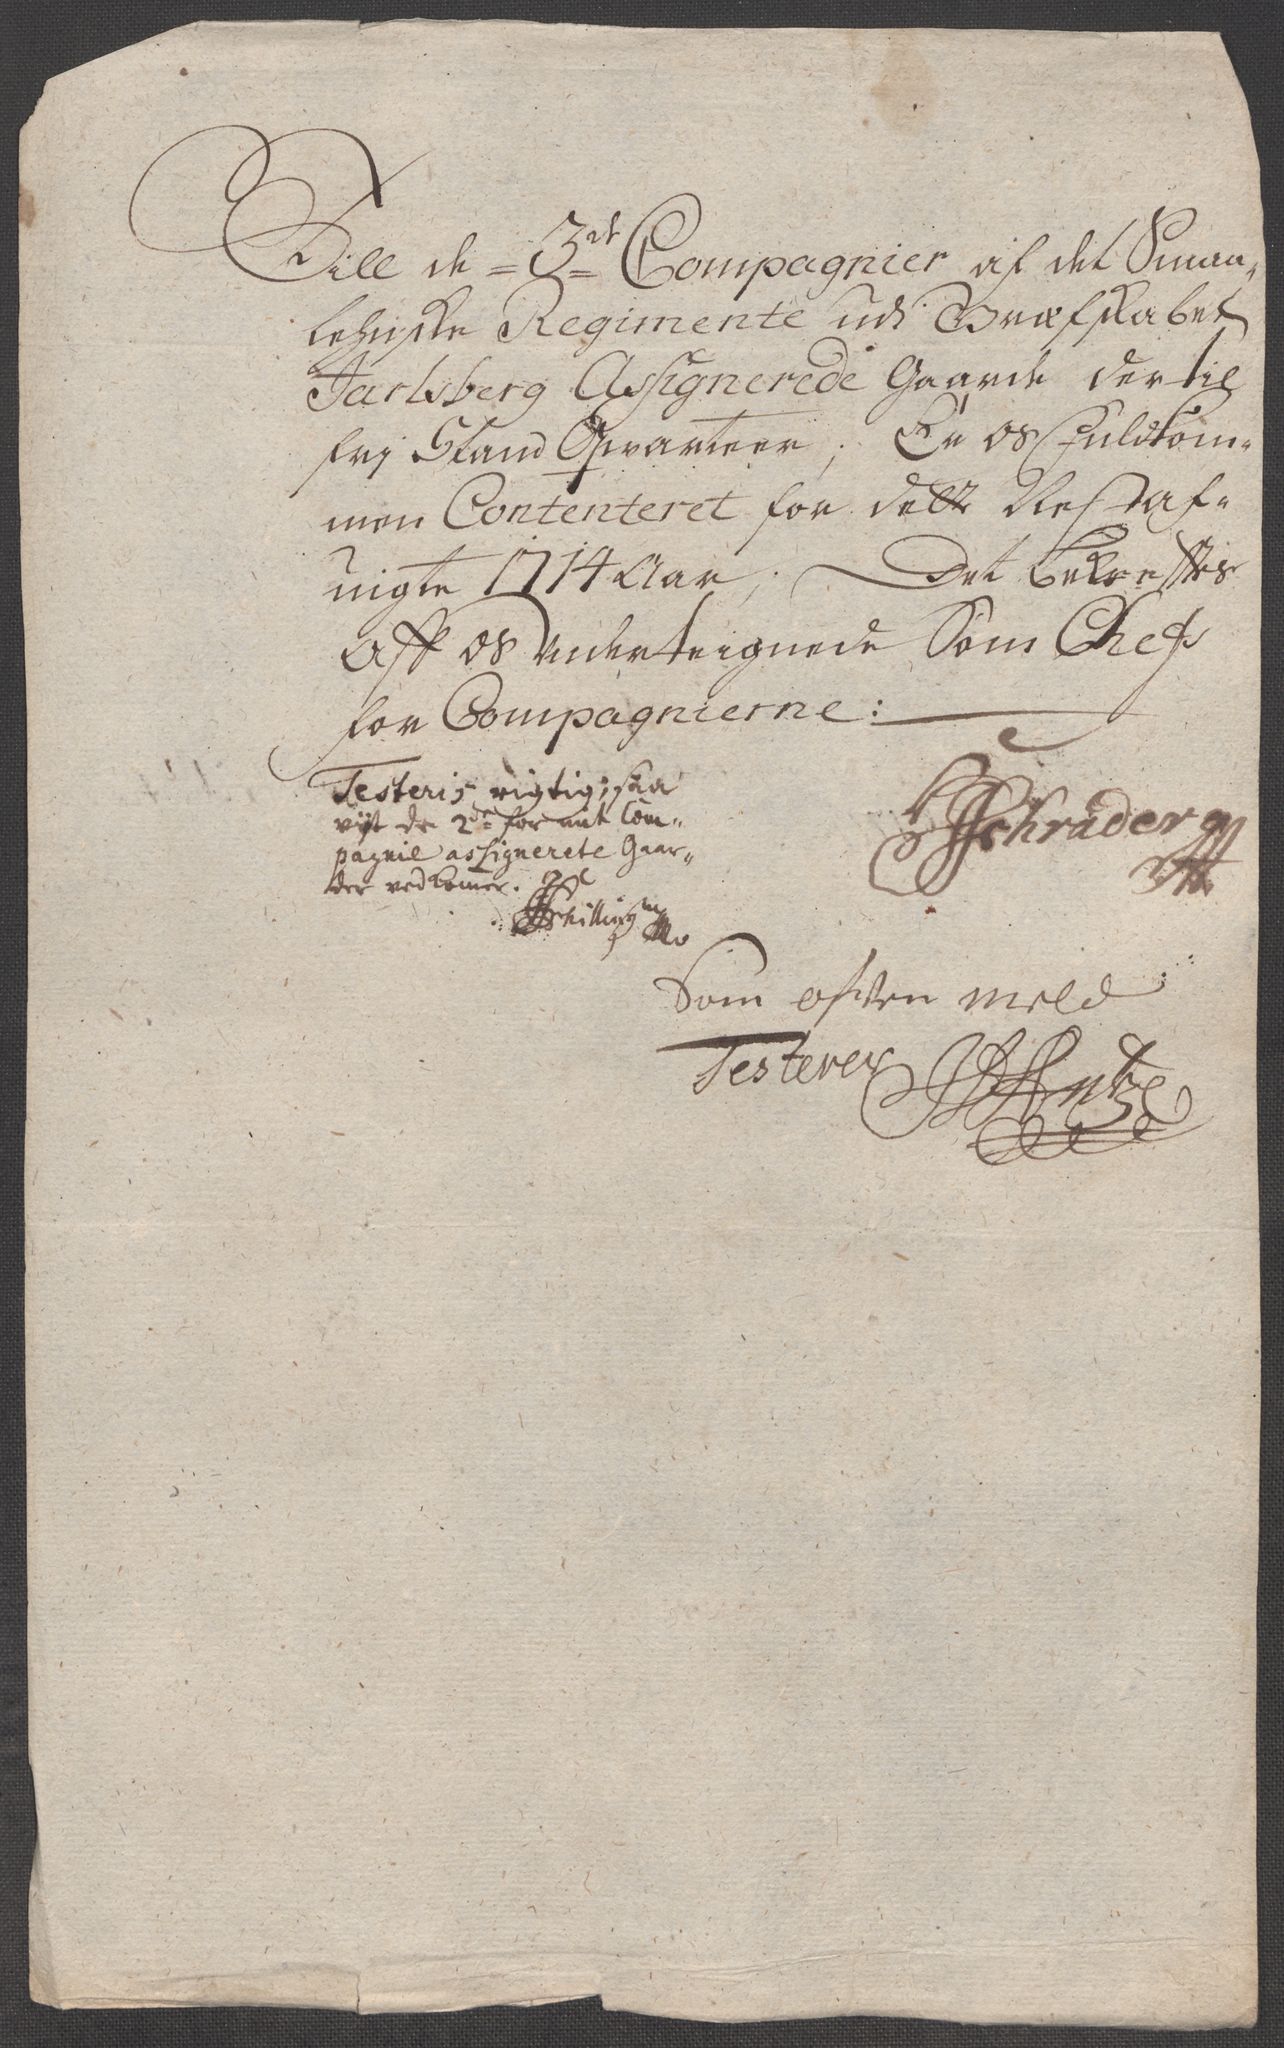 Till de =3de= Compagnier af det Smaa-
lehnske Regimente udi Grefskabet
Jarlsberg Assignerede Gaarde dertil
fri Stand Qvarteer; Er os fuldkom-
men Contenteret for dette Nest af-
vigte 1714 Aar; Det bekreftes
Aff os Underteignede Som Chefs
for Compagnierne:
Testeris rigtig, saa
vijt de 2de for mit Com-
pagnie assignerete Gaar-
der vedkomer.
Schilling
Schrader
Som ofven meld
Testerer